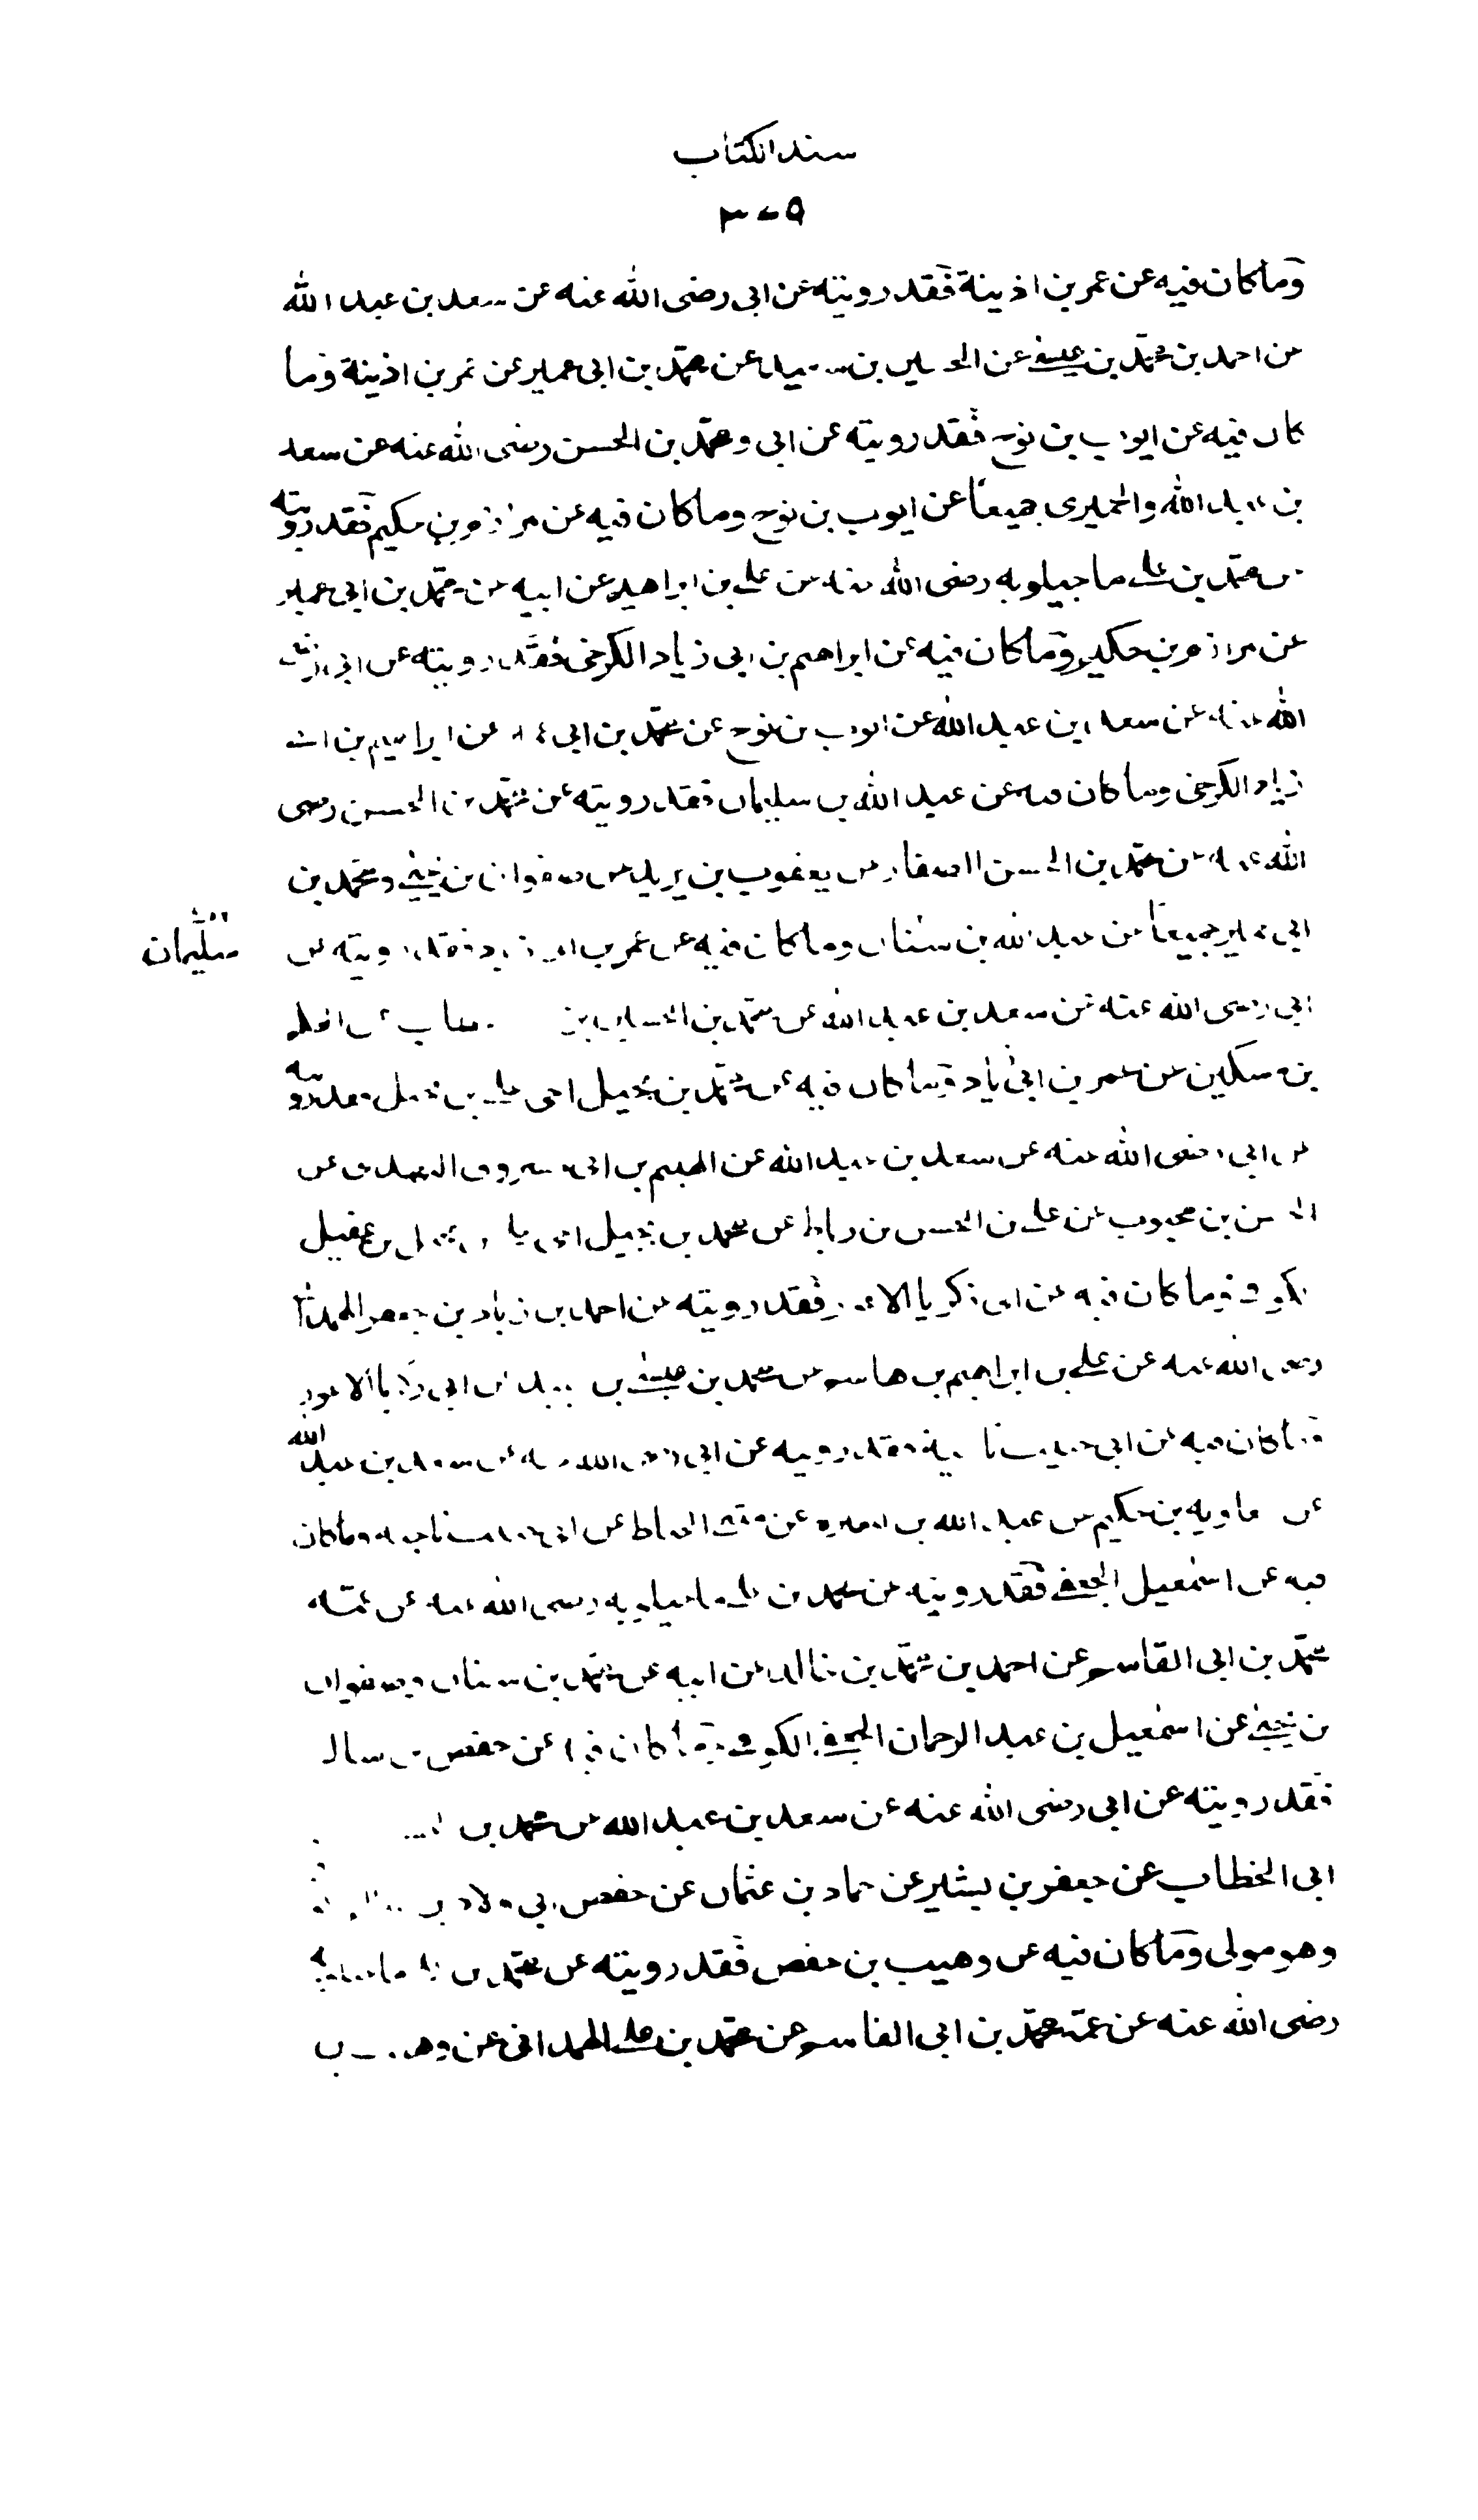 سند الكتاب
وما كان فيه عن عمر بن اذينة فقد رويته عن ابى رضى الله عنه عن سعد بن عبد الله
عن احمد بن محمد بن عيسى عن الحسين بن سعيد عن محمد بن ابى عمير عن عمر بن اذينة وما
كان فيه عن ايوب بن نوح فقد رويته عن ابى ومحمد بن الحسن رضى الله عنه عن سعد
بن عبد الله والحميرى جميعا عن ايوب بن نوح وما كان فيه عن مرازم بن حكيم فقد رويته
عن محمد بن على ماجيلويه رضى الله عنه عن على بن ابراهيم عن ابيه عن محمد بن ابى عمير
عن مرازم بن حكيم وما كان فيه عن ابراهيم بن ابى زياد الكرخى فقد رويته عن ابى رضى
الله عنه عن سعد بن عبد الله عن ايوب بن نوح عن محمد بن ابى عن ابراهيم بن
زياد الكرخى وما كان فيه عن عبد الله بن سليمان فقد رويته عن محمد بن الحسن رضى
الله عنه عن محمد بن الحسن الصفار عن يعقوب بن يزيد عن صفوان بن يحيى ومحمد بن
ابى عمير جميعا عن عبد الله بن سنان وما كان فيه عن عمر بن ابى زياد فقد رويته عن
سليمان
ابى رضى الله عنه عن سعد بن عبد الله عن محمد بن الحسين بن عن الحكم
بن مسكين عن عمر بن ابى زياد وما كان فيه عن محمد بن بجيل اخى على بن بجيل فقد رويته
عن ابى رضى الله عنه عن سعد بن عبد الله عن الهيثم بن ابى مسروق النهدى عن
الحسن بن محبوب عن على بن الحسن بن رباط عن محمد بن بجيل اخى على بن بجيل بن عقيل
الكوفى وما كان فيه عن ابى زكريا الاعور فقد رويته عن احمد بن زياد بن جعفر الهمدانى
رضى الله عنه عن على بن ابراهيم بن هاشم عن محمد بن عيسى بن عبيد عن ابى زكريا الاعور
وما كان فيه عن ابى فقد رويته عن ابى رضى الله عنه عن سعد بن عبد الله
عن معاوية بن حكيم عن عبد الله بن المغيرة عن مثنى الحناط عن ابى وما كان
فيه عن اسمعيل الجعفى فقد رويته عن محمد بن على ماجيلويه رضى الله عنه عن عمه
محمد بن ابى القاسم عن احمد بن محمد بن خالد عن ابيه عن محمد بن سنان وصفوان
بن يحيى عن اسمعيل بن عبد الرحمان الجعفى الكوفى وما كان فيه عن حفص بن سالم
فقد رويته عن ابى رضى الله عنه عن سعد بن عبد الله عن محمد بن
ابى الخطاب عن جعفر بن بشير عن حماد بن عثمان عن حفص ابى ولاد بن
وهو مولى وما كان فيه عن وهيب بن حفص فقد رويته عن محمد بن على ماجيلويه
رضى الله عنه عن عمه محمد بن ابى القاسم عن محمد بن على الهمدانى عن وهيب